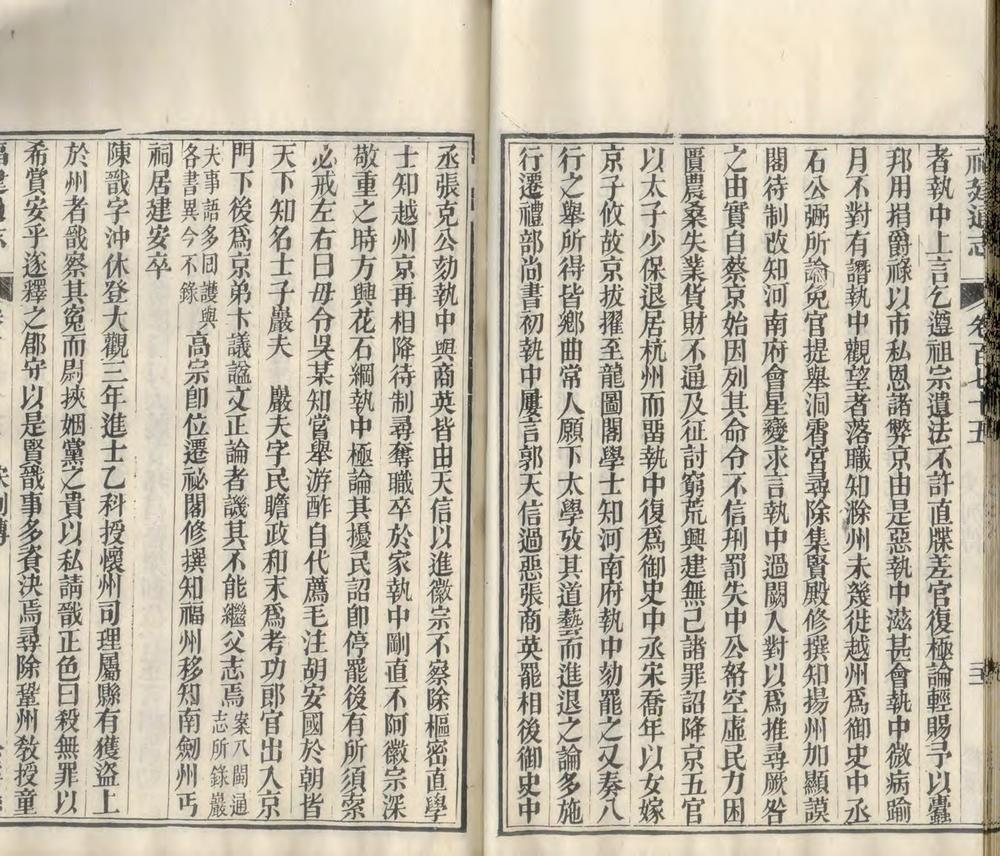 福建通志 卷百七十五 三
者執中上言乞遵祖宗遺法不許直牒差官復極論輕賜予以蠹
邦用捐爵祿以市私恩諸弊京由是惡執中滋甚會執中微病踰
月不對有譖執中觀望者落職知滁州未幾徙越州爲御史中丞
石公弼所論免官提舉洞霄宮尋除集賢殿修撰知揚州加顯謨
閣待制改知河南府會星變求言執中過闕入對以爲推尋厥咎
之由實自蔡京始因列其命令不信刑罰失中公帑空虛民力困
匱農桑失業貨財不通及征討窮荒興建無已諸罪詔降京五官
以太子少保退居杭州而畱執中復爲御史中丞宋喬年以女嫁
京子攸故京拔擢至龍圖閣學士知河南府執中劾罷之又奏八
行之舉所得皆鄉曲常人願下太學攷其道藝而進退之論多施
行遷禮部尚書初執中屢言郭天信過惡張商英罷相後御史中
丞張克公劾執中與商英皆由天信以進徽宗不察除樞密直學
士知越州京再相降待制尋奪職卒於家執中剛直不阿徽宗深
敬重之時方興花石綱執中極論其擾民詔卽停罷後有所須索
必戒左右曰毋令吳某知嘗舉游酢自代薦毛注胡安國於朝皆
天下知名士子巖夫 巖夫字民瞻政和末爲考功郎官出入京
門下後爲京弟卞議諡文正論者譏其不能繼父志焉案八閩通志所錄巖
夫事語多囘護與各書異今不錄 高宗卽位遷祕閣修撰知福州移知南劍州丐
祠居建安卒
陳戩字沖休登大觀三年進士乙科授懷州司理屬縣有獲盜上
於州者戩察其寃而尉挾姻黨之貴以私請戩正色曰殺無罪以
希賞安乎遂釋之郡守以是賢戩事多資決焉尋除鞏州敎授童
福建通志